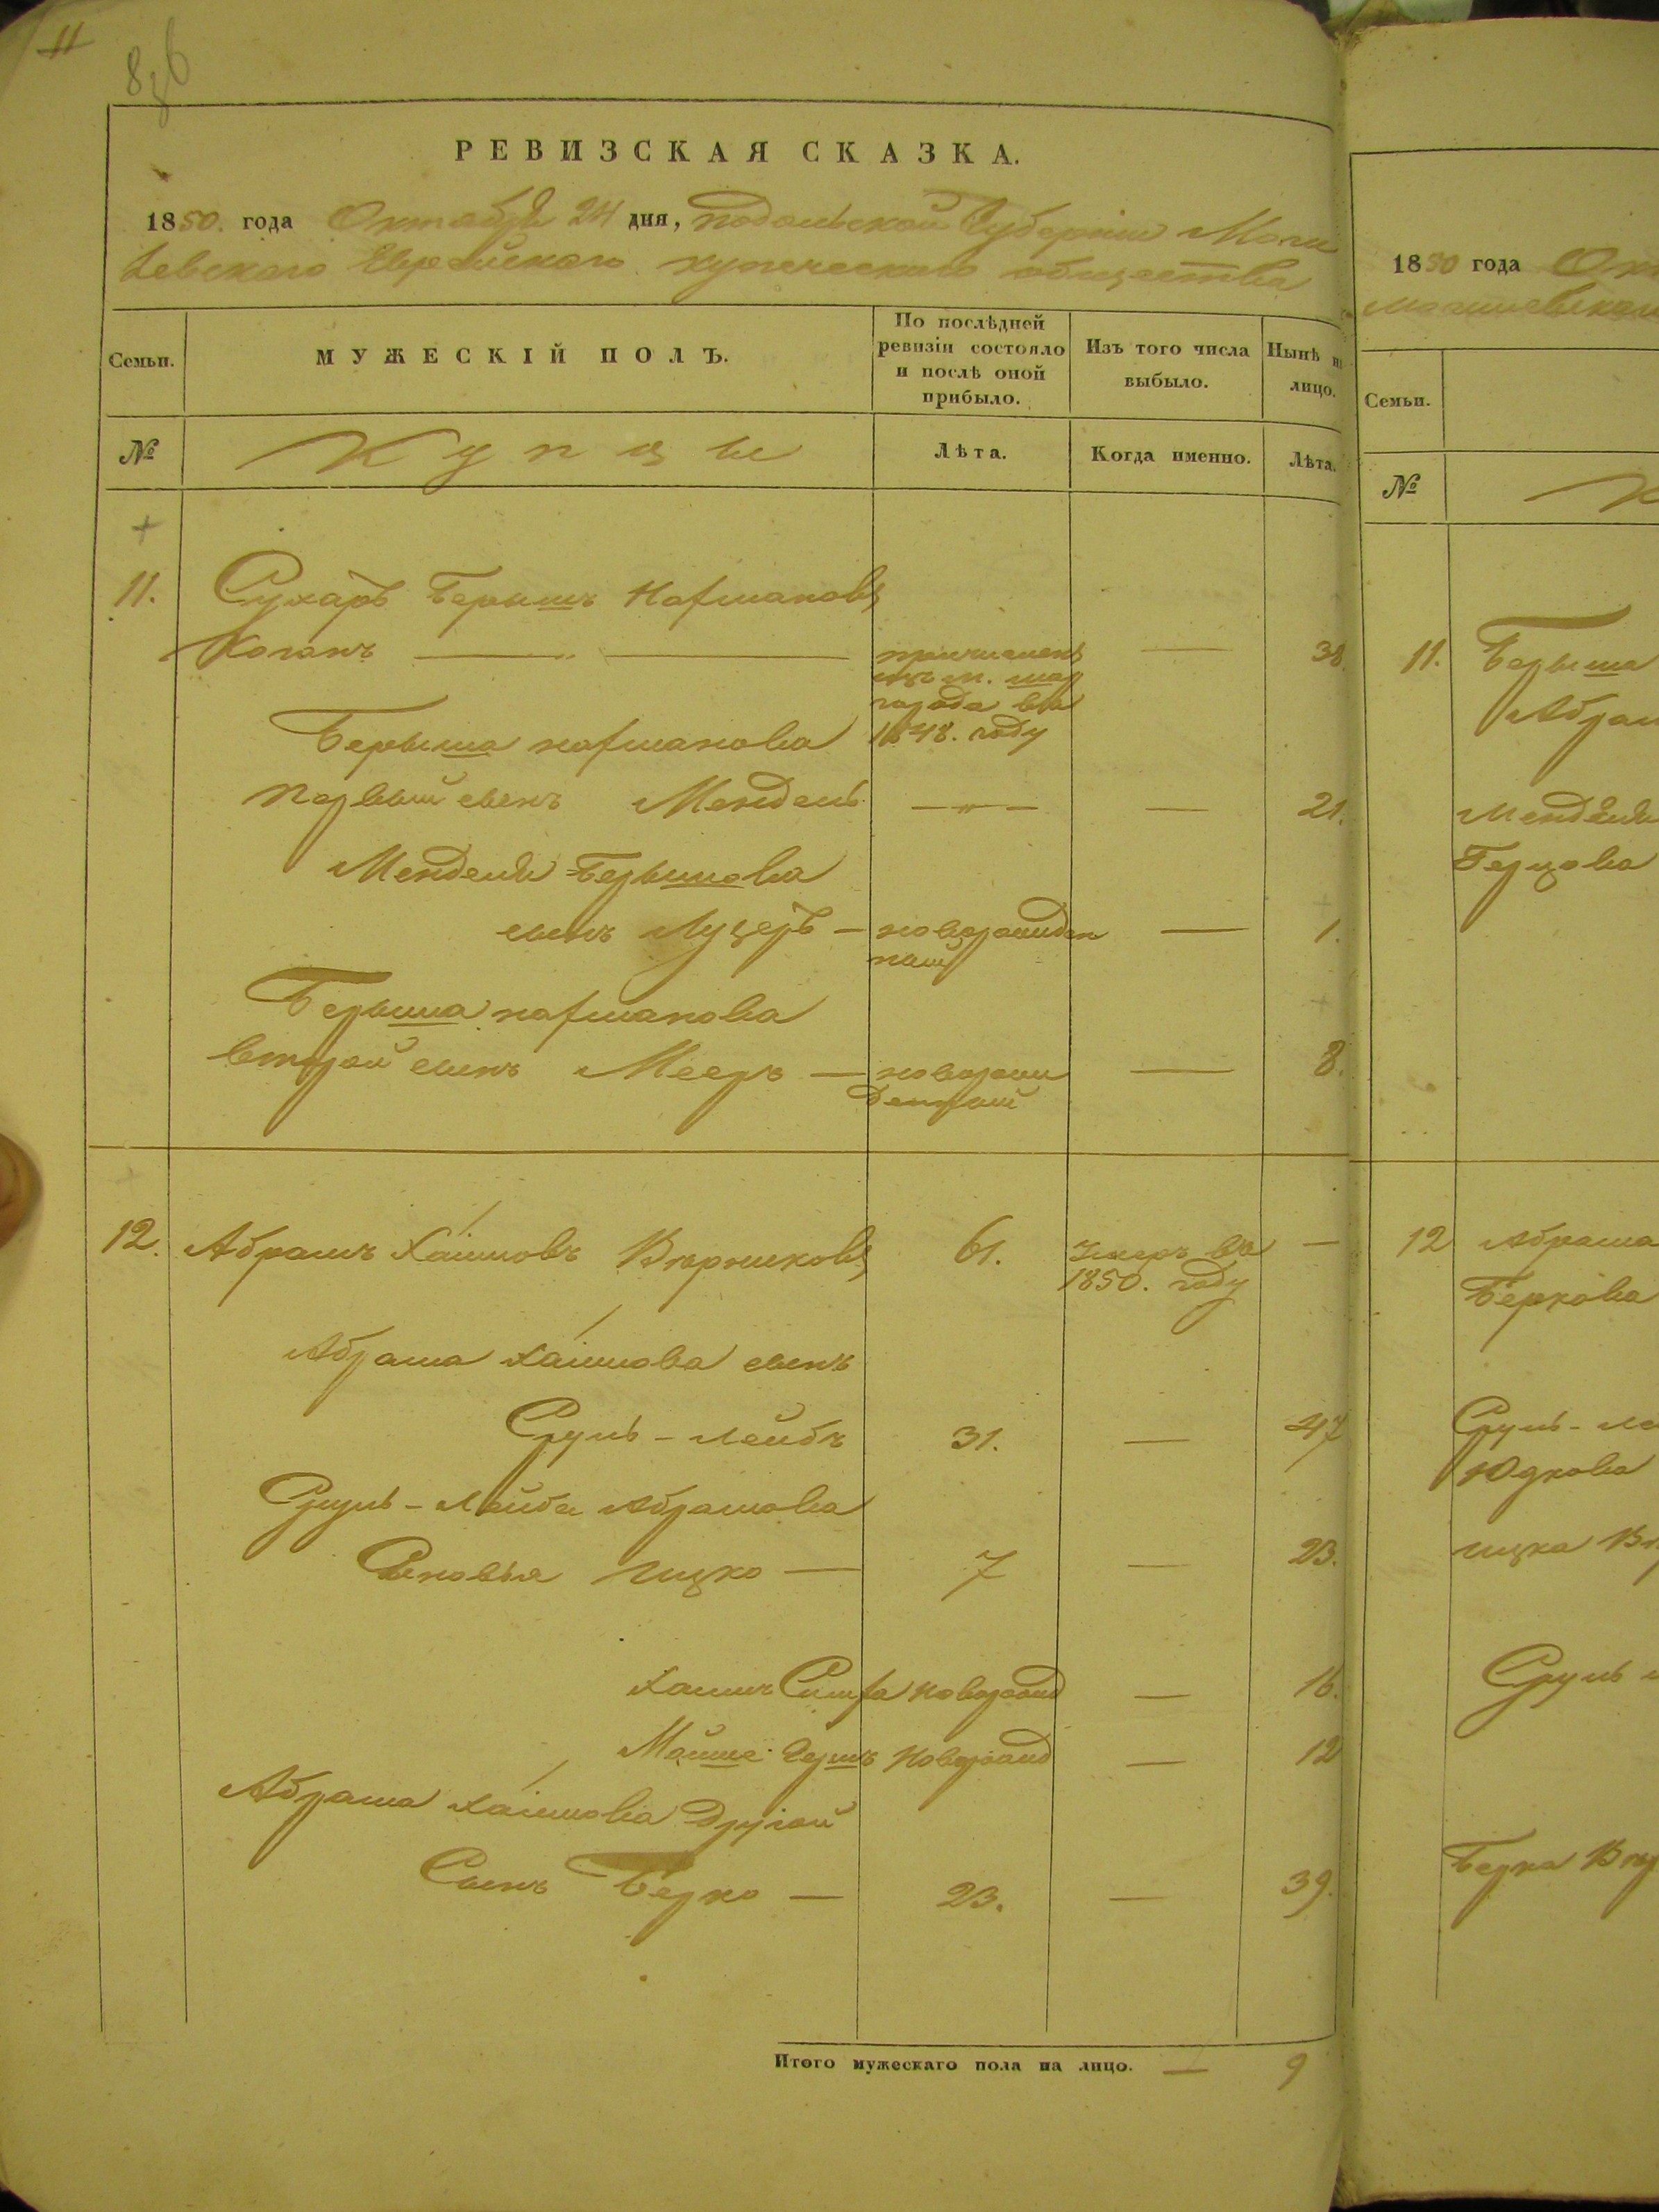 11
836
РЕВИЗСКАЯ СКАЗКА.
1850. года Октября 24 дня, Подольской Губернiи Моги
левскаго Еврейскаго купеческаго общества
Семьи.
МУЖЕСКІЙ ПОЛЪ.
По послѣдней ревизіи состояло и послѣ оной прибыло.
Изъ того числа выбыло.
Нынѣ на лицо.
№
Купцы
Лѣта.
Когда именно.
Лѣта.
11. Сухаръ Берышъ Нафтановъ
Коганъ — причисленъ — 38.
изъ м. Шар
города въ
Берыша Нафтанова 1848. году
первый сынъ Мендель — " — — 21.
Менделя Берышова
сынъ Лузеръ — новорожден — 1.
ный
Берыша Нафтанова
второй сынъ Мееръ — новорож — 8.
денный
12. Абрамъ Хаимовъ Вертиковъ 61. Умеръ въ —
1850. году
Абрама Хаимова сынъ
Сруль-Лейбъ 31. — 47
Сруль-Лейба Абрамова
Сыновья Ицко — 7 — 23.
Хаимъ Симха новорожд — 16.
Мойше Гершъ новорожд — 12
Абрама Хаимова другой
Сынъ Берко — 23. — 39.
Итого мужескаго пола на лицо. — 9
1850 года
Семьи.
№
11. Берыша
Абрам
Менделя
Герцова
12 Абрама
Беркова
Сруль-Ле
Юдкова
Ицка
Сруль
Берка